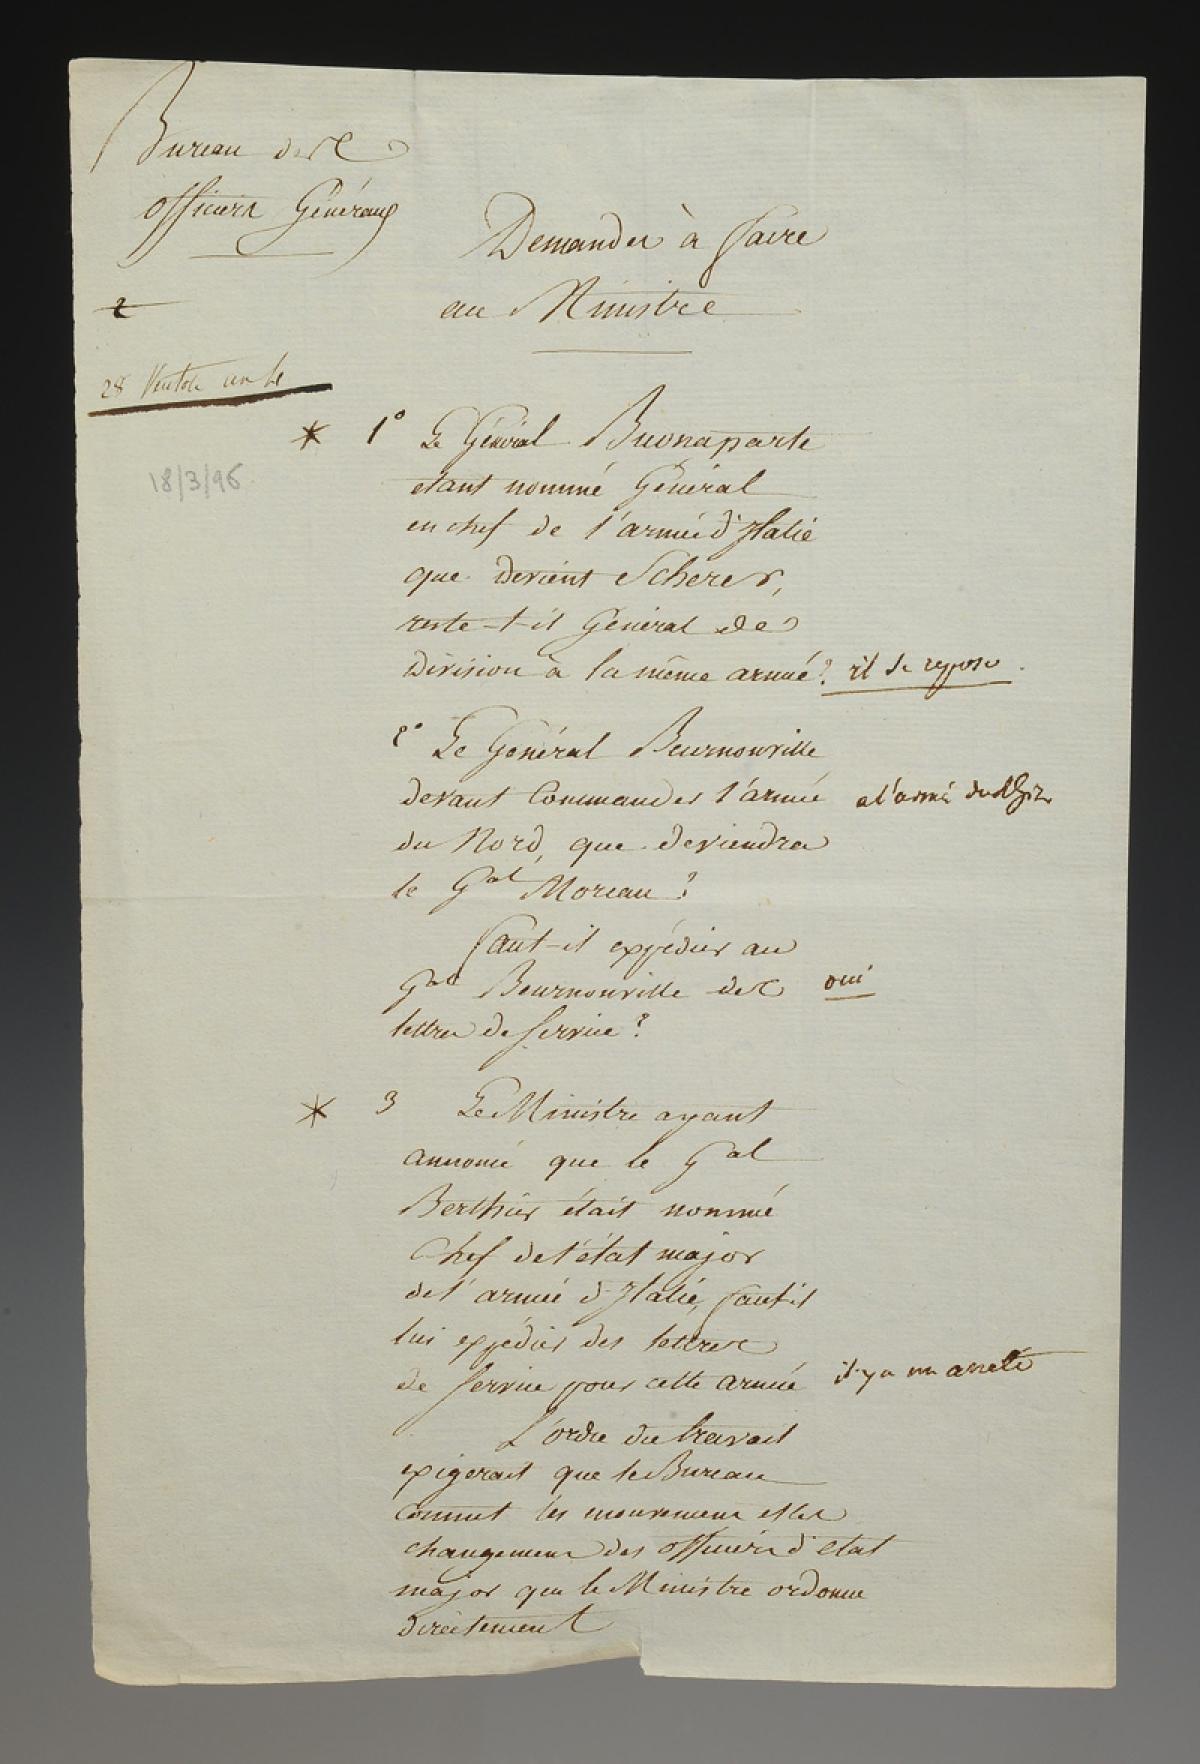 Bureau des
officiers Généraux
Demandes à faire
au Ministre
2
28 Ventose an 4
18/3/96
* 1° Le Général Buonaparte
étant nommé Général
en chef de l'armée d'Italie
que devient Scherer,
reste-t-il Général de
Division à la même armée? il se repose.
2° Le Général Beurnonville
devant Commander l'armée a l'armée du Rhin
du Nord, que deviendra
le Gal Moreau?
faut-il expédier au
Gal Beurnonville des oui
lettres de service?
* 3 Le Ministre ayant
annoncé que le Gal
Berthier était nommé
Chef de l'état major
de l'armée d'Italie, faut il
lui expédier des lettres
de service pour cette armée il y a un arreté
L'ordre du travail
exigerait que le Bureau
connut les mouvemens et les
changemens des officiers d'état
major que le Ministre ordonne
directement